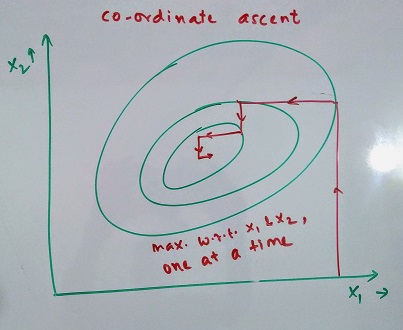 co-ordinate ascent
x₂↑
max. w.r.t. x₁ & x₂,
one at a time
x₁ →